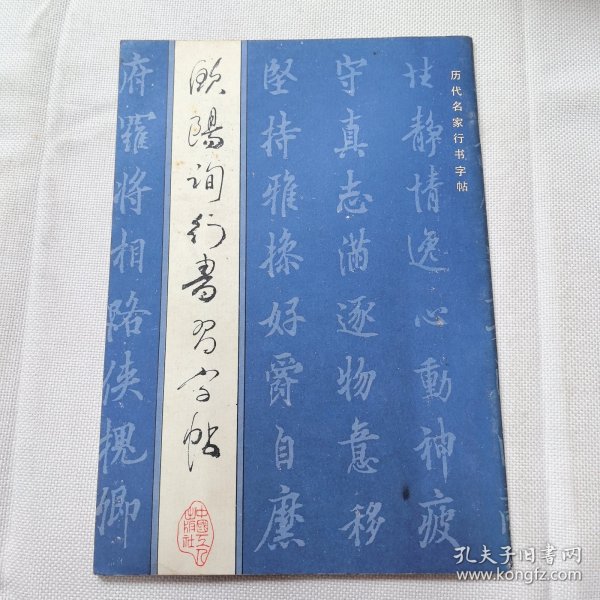 历代名家行书字帖
性静情逸心動神疲
守真志滿逐物意移
堅持雅操好爵自縻
歐陽詢行書習字帖
中國工人
出版社
府羅將相路俠槐卿
孔夫子旧书网
www.kongfz.com